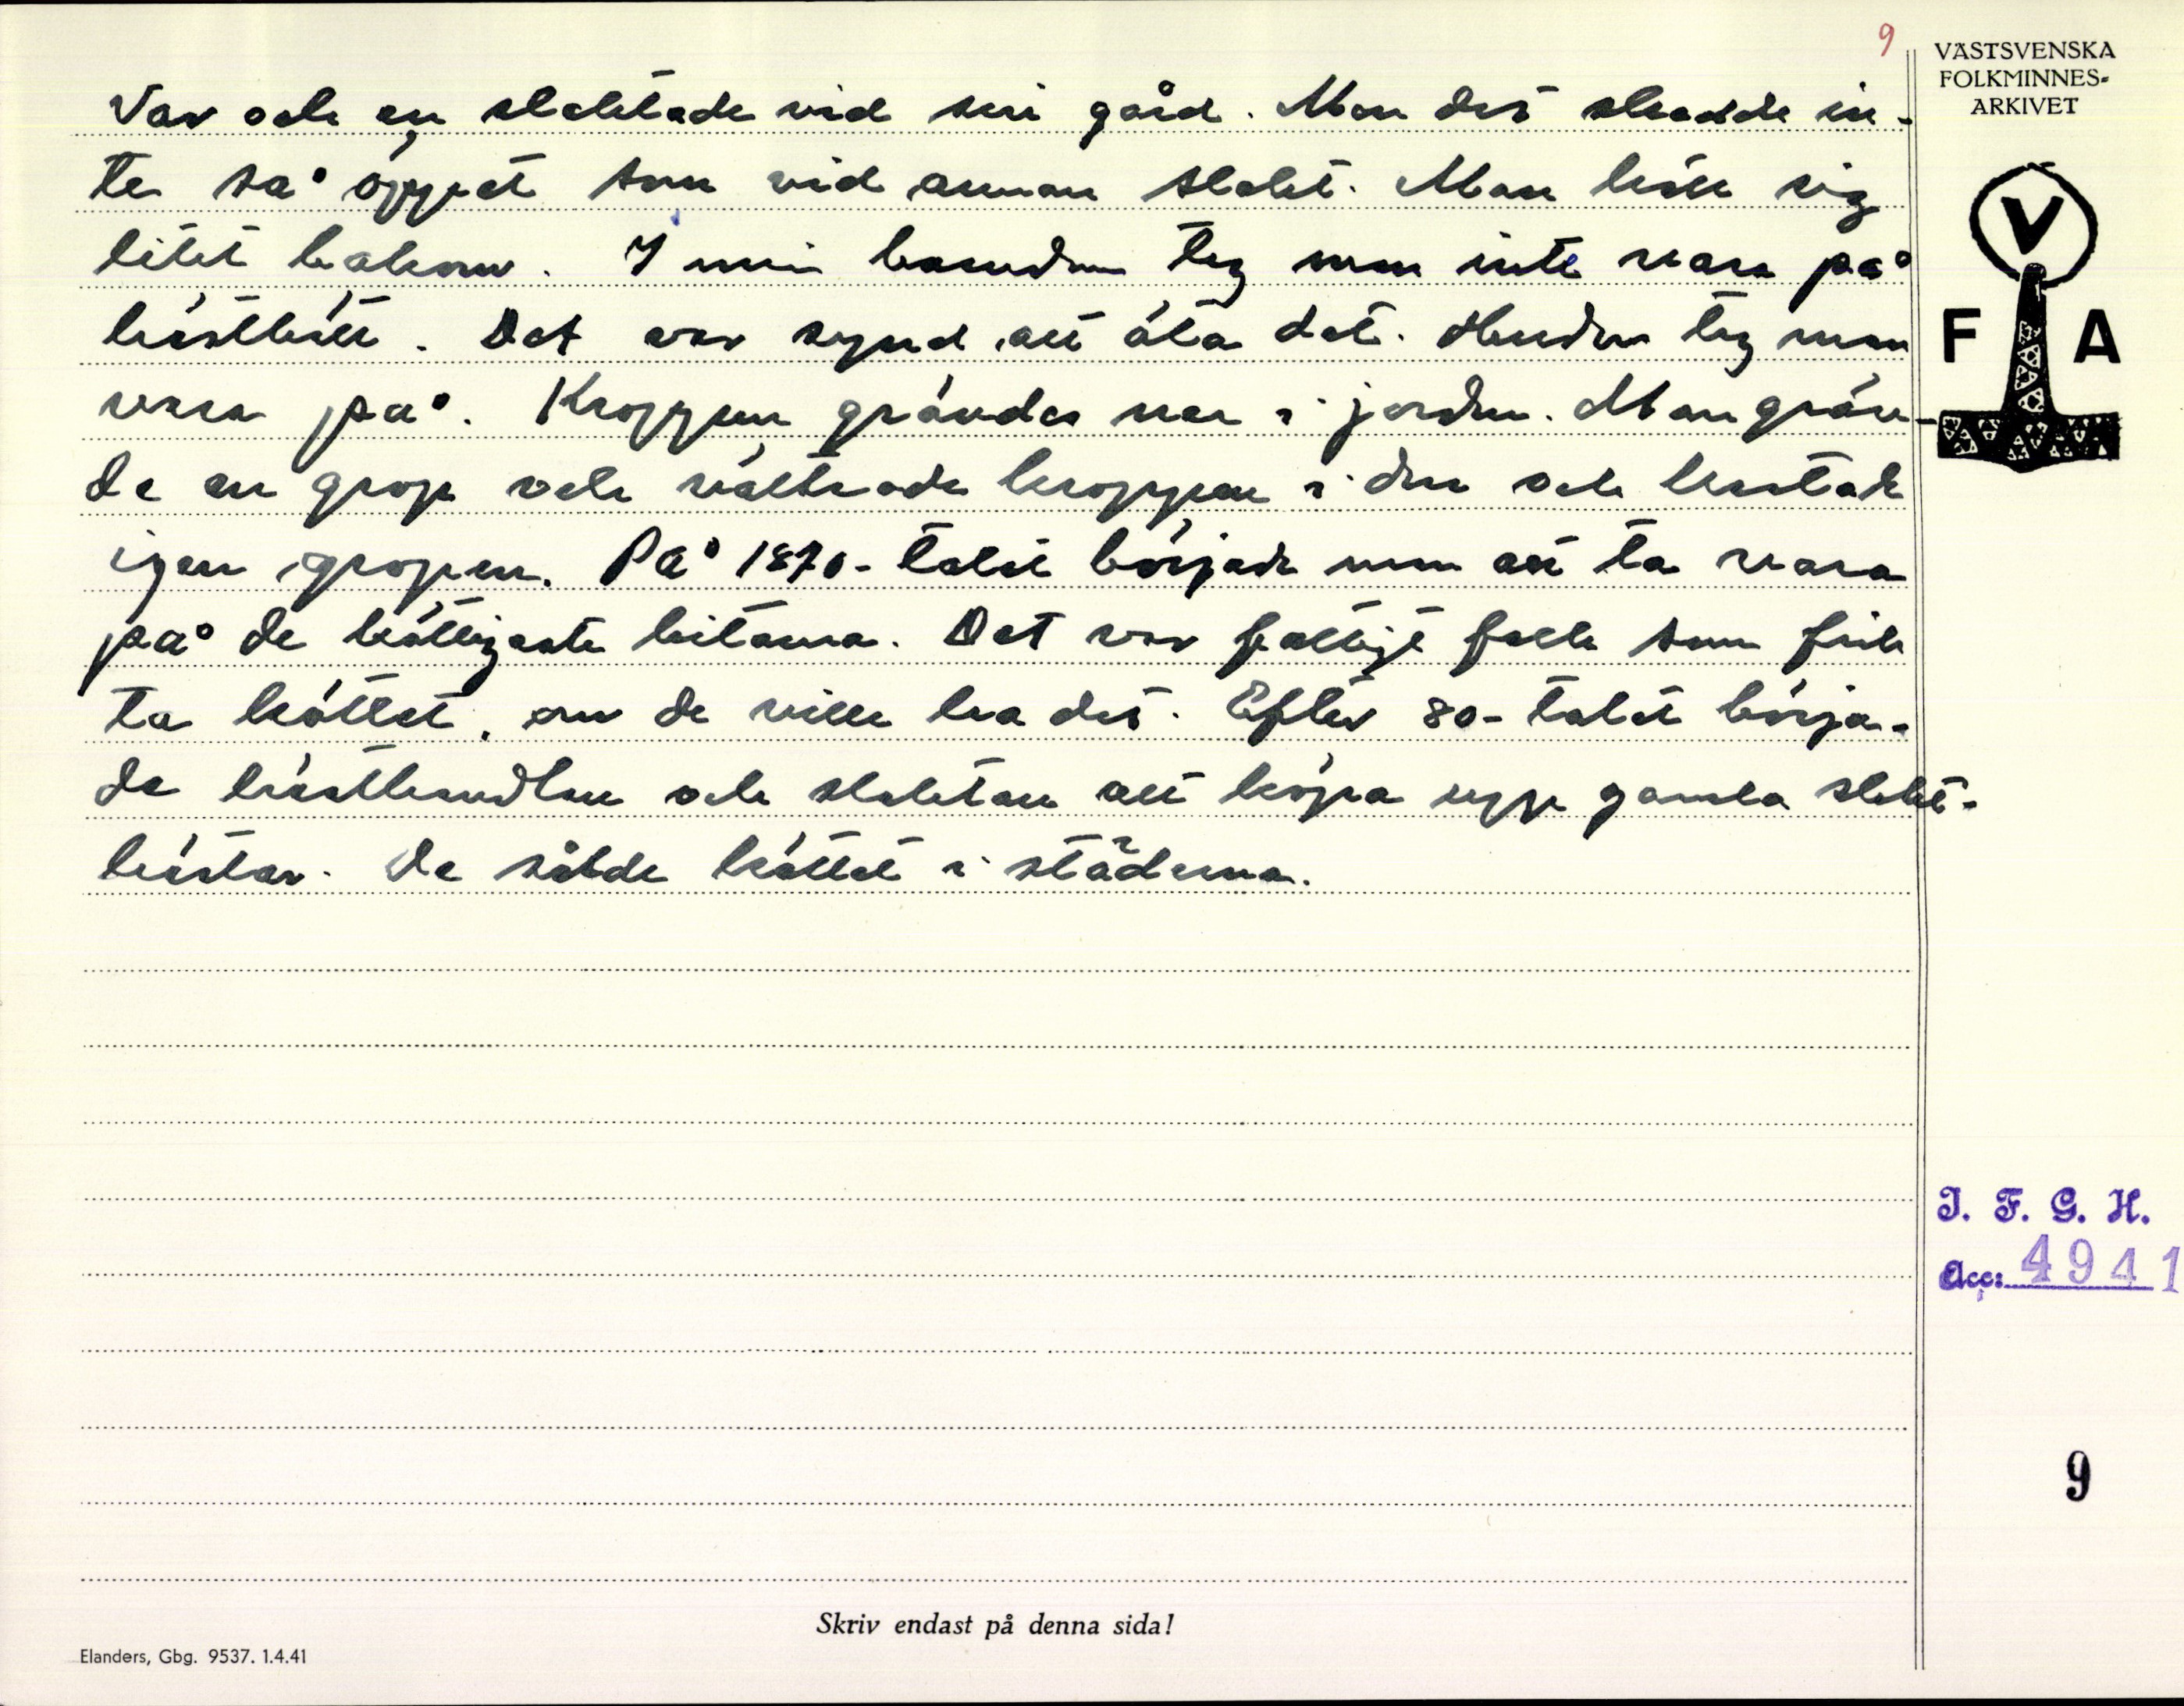 9
VÄSTSVENSKA
FOLKMINNES-
ARKIVET
Var och en slaktade vid sin gård. Men det skedde in-
te så öppet som vid annan slakt. Man höll sig
litet bakom. I min barndom tog man inte vara på
hästkött. Det var synd att äta det. Huden tog man
vara på. Kroppen grävdes ner i jorden. Man gräv-
de en grop och vältrade kroppen i den och kastade
igen gropen. På 1870-talet började man att ta vara
på de köttigaste bitarna. Det var fattigt folk som fick
ta köttet, om de ville ha det. Efter 80-talet börja-
de hästhandlare och slaktare att köpa upp gamla slakt-
hästar. De sålde köttet i städerna.
V
F A
I. F. G. H.
Acc: 4941
9
Skriv endast på denna sida!
Elanders, Gbg. 9537. 1.4.41